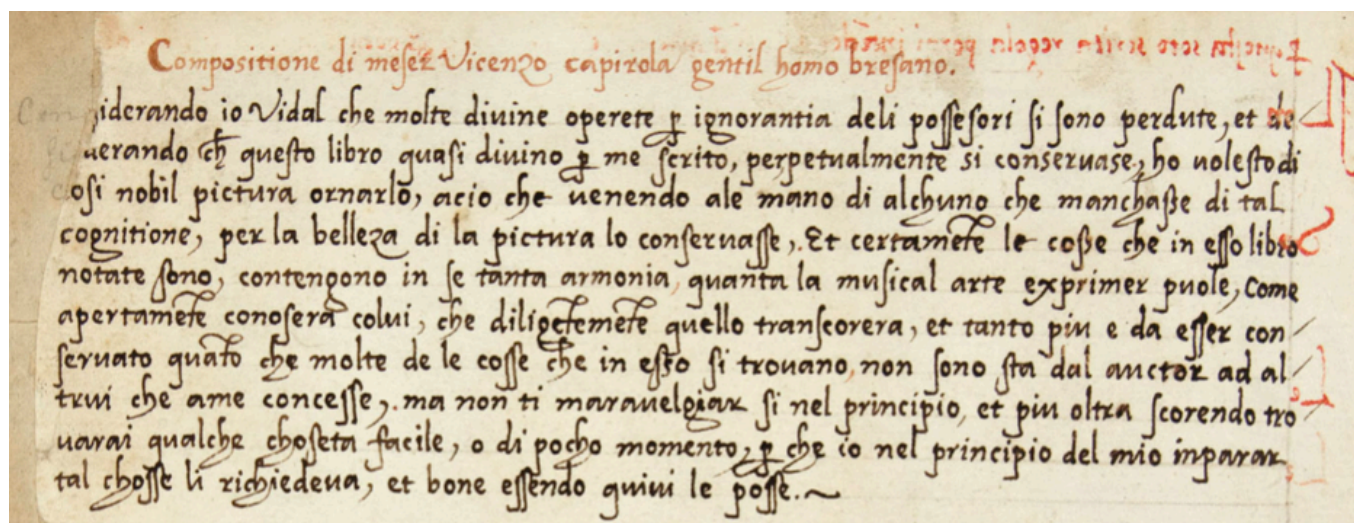 Compositione di meser Vicenzo capirola gentil homo bresano.
iderando io Vidal che molte divine operete ꝑ ignorantia deli possesori si sono perdute, et de
iderando ch̄ questo libro quasi divino ꝑ me scrito, perpetualmente si conservase, ho volesto di
cosi nobil pictura ornarlo, acio che venendo ale mano di alchuno che manchasse di tal
cognitione, per la belleza di la pictura lo conservasse, Et certamēte le cosse che in esso libro
notate sono, contengono in se tanta armonia, quanta la musical arte exprimer puole, Come
apertamēte conosera colui, che diligētemēte quello transcorera, et tanto piu e da esser con
servato quāto che molte de le cosse che in esso si trovano, non sono sta dal auctor ad al
trui che ame concesse, ma non ti maravelgiar si nel principio, et piu oltra scorendo tro
varai qualche choseta facile, o di pocho momento, ꝑ che io nel principio del mio inparar
tal chosse li richiedeva, et bone essendo quivi le posse.~